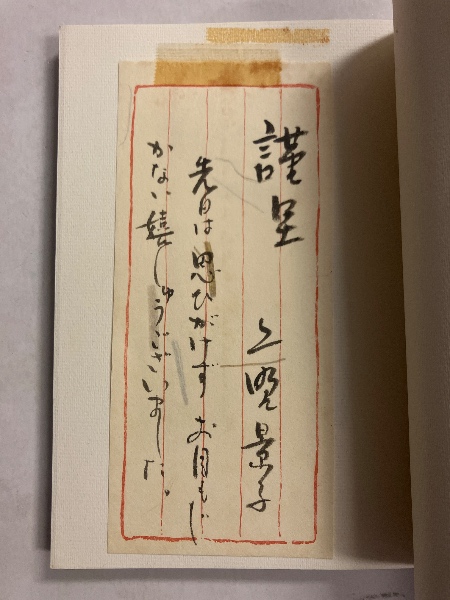 謹呈 上野景子
先日は思ひがけずお目もじ
かない嬉しゅうございました。